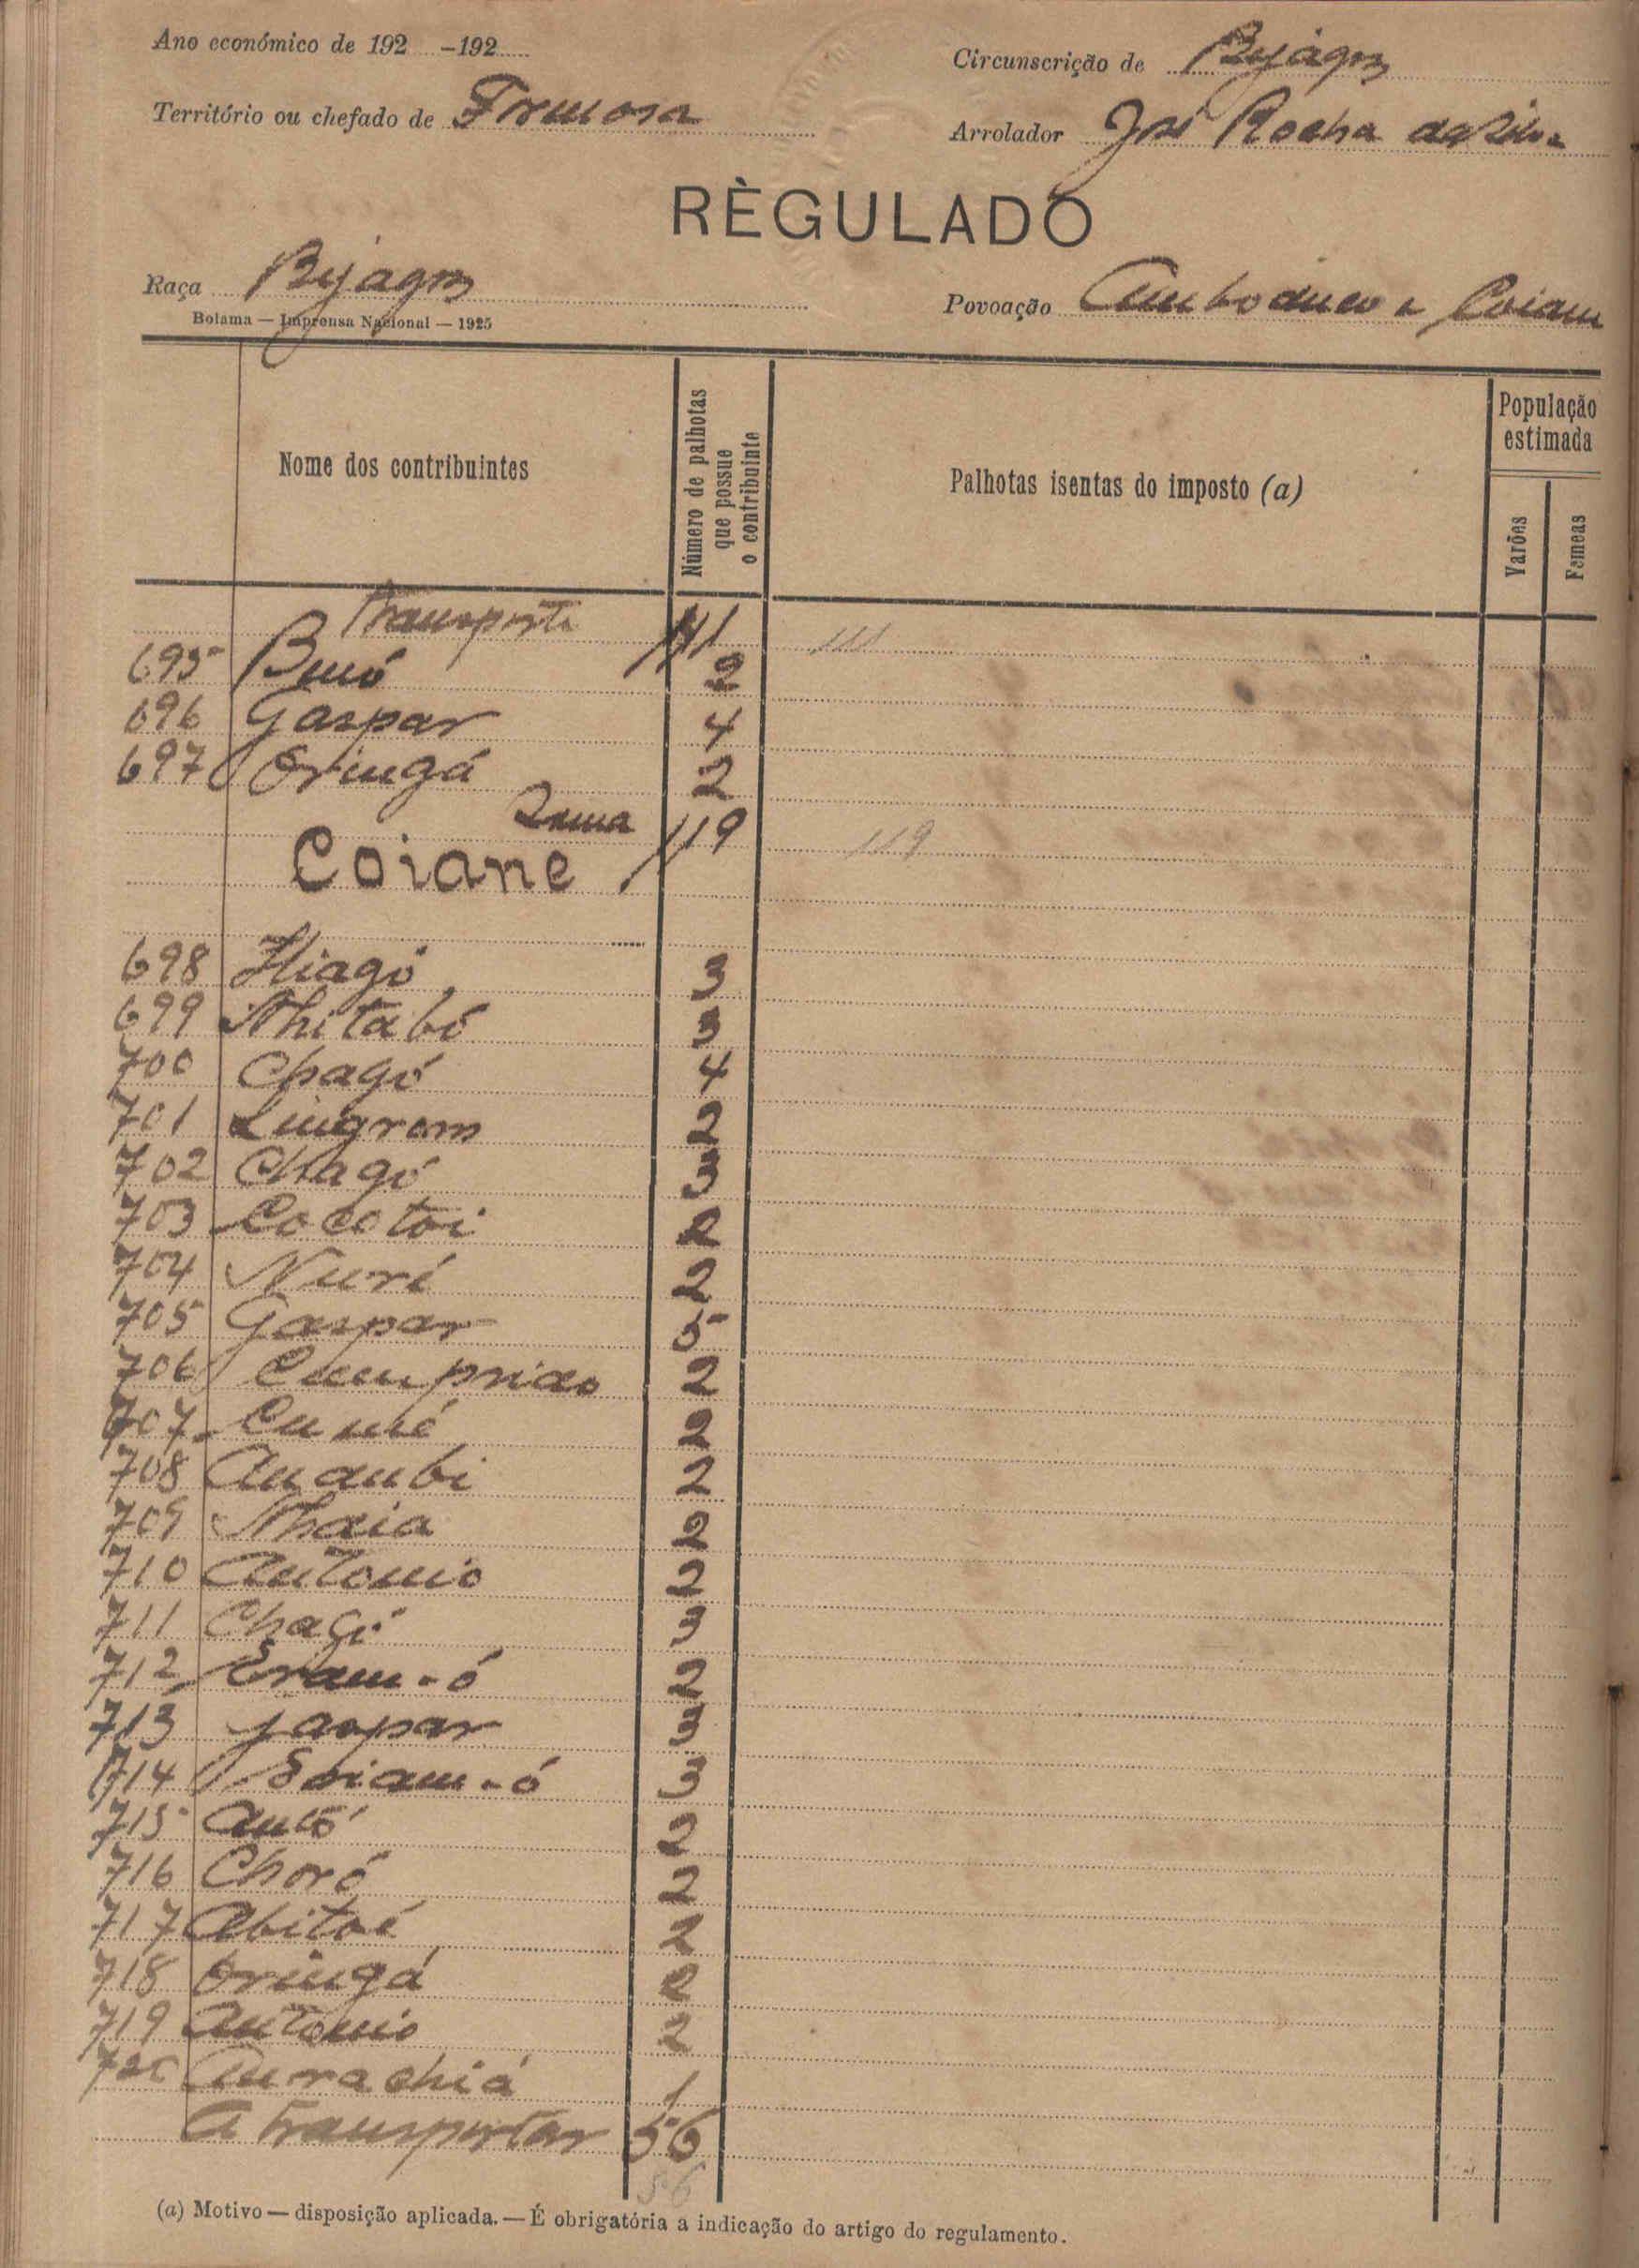 Ano económico de 192 -192
Circunscrição de Byágos
Território ou chefado de Formosa
Arrolador José Rocha da Silva
RÈGULADO
Raça Byágos
Povoação e Coiam
Bolama — Imprensa Nacional — 1925
Nome dos contribuintes
Número de palhotas que possue o contribuinte
Palhotas isentas do imposto (a)
População estimada
Varões
Femeas
Transporte 111 111
695 Bumó 2
696 Gaspar 4
697 Oringá 2
Soma 119 119
Coiane
698 3
699 Nhitabó 3
700 Chagó 4
701 Lingrom 2
702 Chagó 3
703 Cocotoi 2
704 Nuri 2
705 Gaspar 5
706 2
707 Cumé 2
708 Anaubi 2
709 Nhaia 2
710 Antonio 2
711 Chagó 3
712 Eram-ó 2
713 Gaspar 3
714 3
715 Antó 2
716 Choró 2
717 Abitoé 2
718 Oringá 2
719 Antonio 2
720 1
A transportar 56
56
(a) Motivo — disposição aplicada. — É obrigatória a indicação do artigo do regulamento.